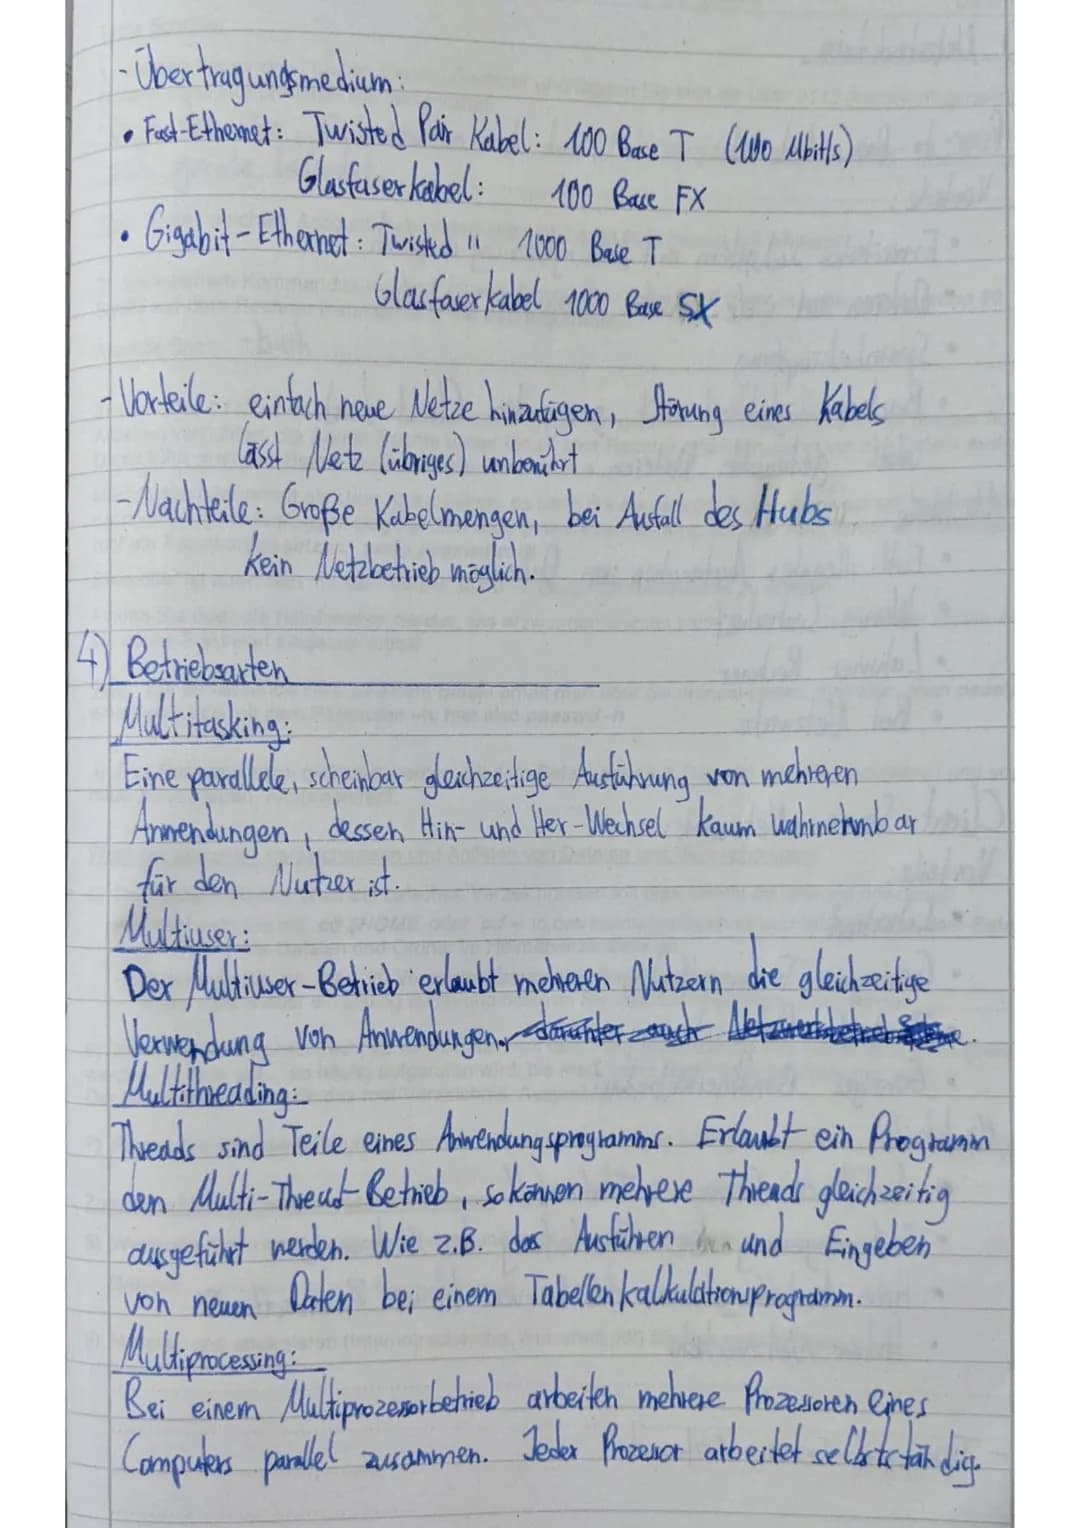 - Übertragungsmedium:
• Fast-Ethernet: Twisted Pair Kabel: 100 Base T (100 Mbit/s)
Glasfaserkabel: 100 Base FX
• Gigabit-Ethernet: Twisted " 1000 Base T
Glasfaserkabel 1000 Base SX
- Vorteile: einfach neue Netze hinzufügen, Störung eines Kabels
lässt Netz (übriges) unberührt
- Nachteile: Große Kabelmengen, bei Ausfall des Hubs
kein Netzbetrieb möglich.
4) Betriebsarten
Multitasking:
Eine parallele, scheinbar gleichzeitige Ausführung von mehreren
Anwendungen, dessen Hin- und Her-Wechsel kaum wahrnehmbar
für den Nutzer ist.
Multiuser:
Der Multiuser-Betrieb erlaubt mehreren Nutzern die gleichzeitige
Verwendung von Anwendungen, darunter auch
Multithreading:
Threads sind Teile eines Anwendungsprogramms. Erlaubt ein Programm
den Multi-Thread-Betrieb, so können mehrere Threads gleichzeitig
ausgeführt werden. Wie z.B. das Ausführen und Eingeben
von neuen Daten bei einem Tabellenkalkulationsprogramm.
Multiprocessing:
Bei einem Multiprozessorbetrieb arbeiten mehrere Prozessoren eines
Computers parallel zusammen. Jeder Prozessor arbeitet selbstständig.